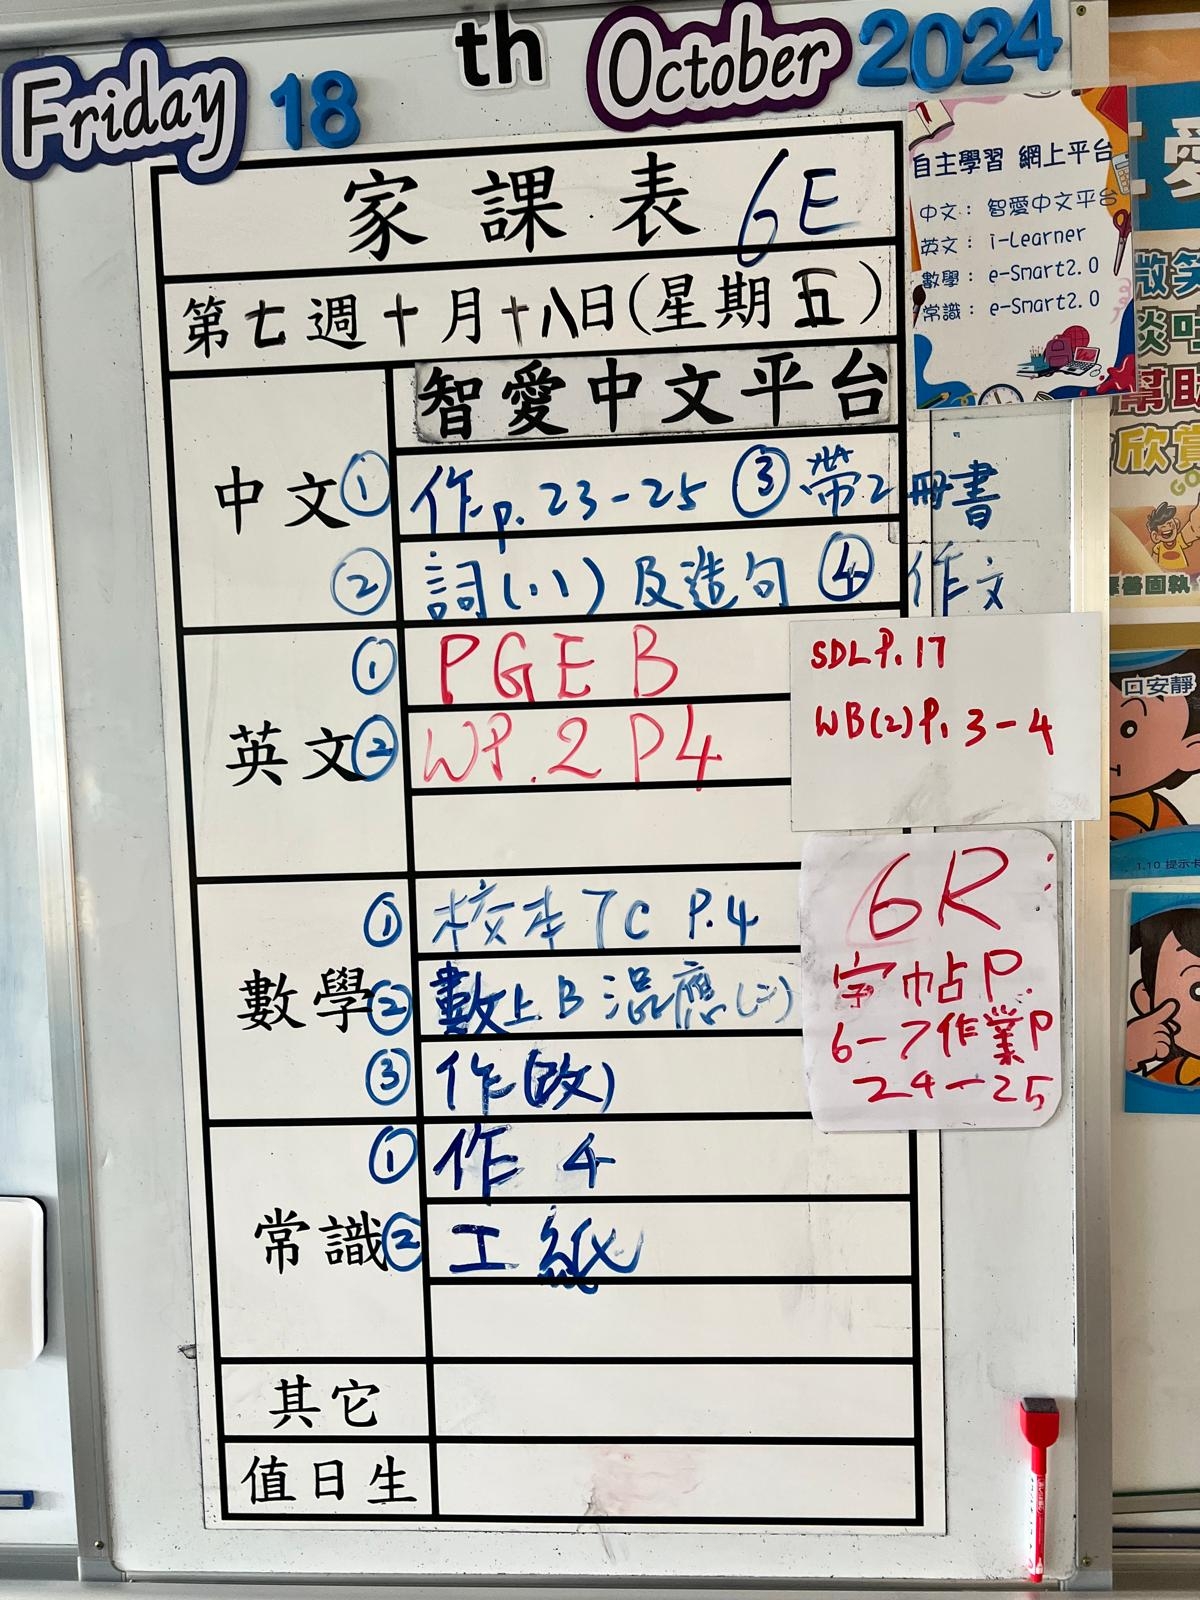 Friday 18 th October 2024
家課表 6E
第七週十月十八日(星期五)
智愛中文平台
中文 ① 作p.23-25 ③ 帶2冊書
② 詞(1.1) 及造句 ④ 作文
英文 ① PGE B
② WP.2 P4
SDL P.17
WB(2)P.3-4
數學 ① 校本 7C P.4
② 數上B 混應(二)
③ 作(改)
6R:
字帖P.
6-7作業P
24-25
常識 ① 作 4
② 工紙
其它
值日生
自主學習 網上平台
中文: 智愛中文平台
英文: i-Learner
數學: e-Smart2.0
常識: e-Smart2.0
愛
微笑
幫助
欣賞
GO
善固執
口安靜
1.10 提示卡